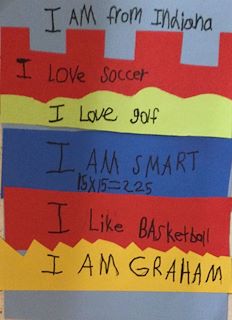 I AM from Indiana
I LOVE soccer
I Love golf
I AM SMART
15x15=225
I Like BASketball
I AM GRAHAM